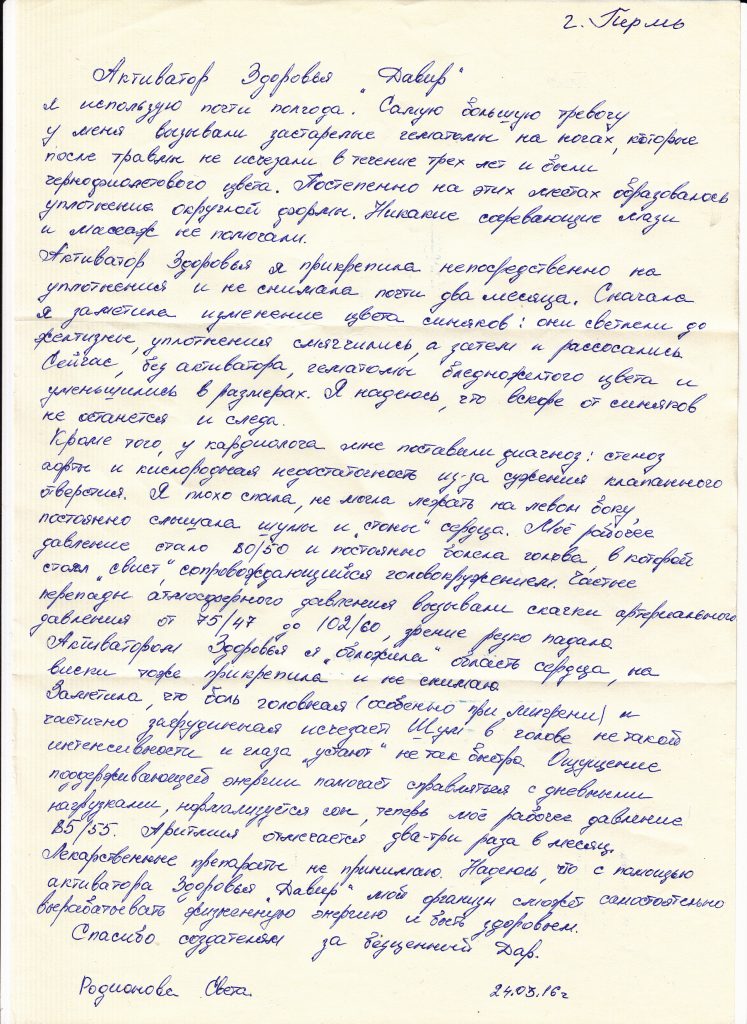 г. Пермь
Активатор Здоровья "Давир"
я использую почти полгода. Самую большую тревогу
у меня вызывали застарелые гематомы на ногах, которые
после травмы не исчезали в течение трех лет и были
чернофиолетового цвета. Постепенно на этих местах образовалось
уплотнение округлой формы. Никакие согревающие мази
и массаж не помогали.
Активатор Здоровья я прикрепила непосредственно на
уплотнения и не снимала почти два месяца. Сначала
я заметила изменение цвета синяков: они светлели до
желтизны, уплотнения смягчились, а затем и рассосались.
Сейчас, без активатора, гематомы бледножелтого цвета и
уменьшились в размерах. Я надеюсь, что вскоре от синяков
не останется и следа.
Кроме того, у кардиолога мне поставили диагноз: стеноз
аорты и кислородная недостаточность из-за сужения клапанного
отверстия. Я плохо спала, не могла лежать на левом боку,
постоянно слышала шумы и "стоны" сердца. Моё рабочее
давление стало 80/50 и постоянно болела голова, в которой
стоял "свист", сопровождающийся головокружением. Частые
перепады атмосферного давления вызывали скачки артериального
давления от 75/47 до 102/60, зрение резко падало.
Активатором Здоровья я "обложила" область сердца, на
виски тоже прикрепила и не снимаю.
Заметила, что боль головная (особенно при мигрени) и
частично загрудинная исчезает. Шум в голове не такой
интенсивности и глаза "устают" не так быстро. Ощущение
поддерживающей энергии помогает справляться с дневными
нагрузками, нормализуется сон, теперь моё рабочее давление
85/55. Аритмия отмечается два-три раза в месяц.
Лекарственные препараты не принимаю. Надеюсь, что с помощью
активатора Здоровья "Давир" мой организм сможет самостоятельно
вырабатывать жизненную энергию и быть здоровым.
Спасибо создателям за бесценный Дар.
Родионова Света
24.03.16г